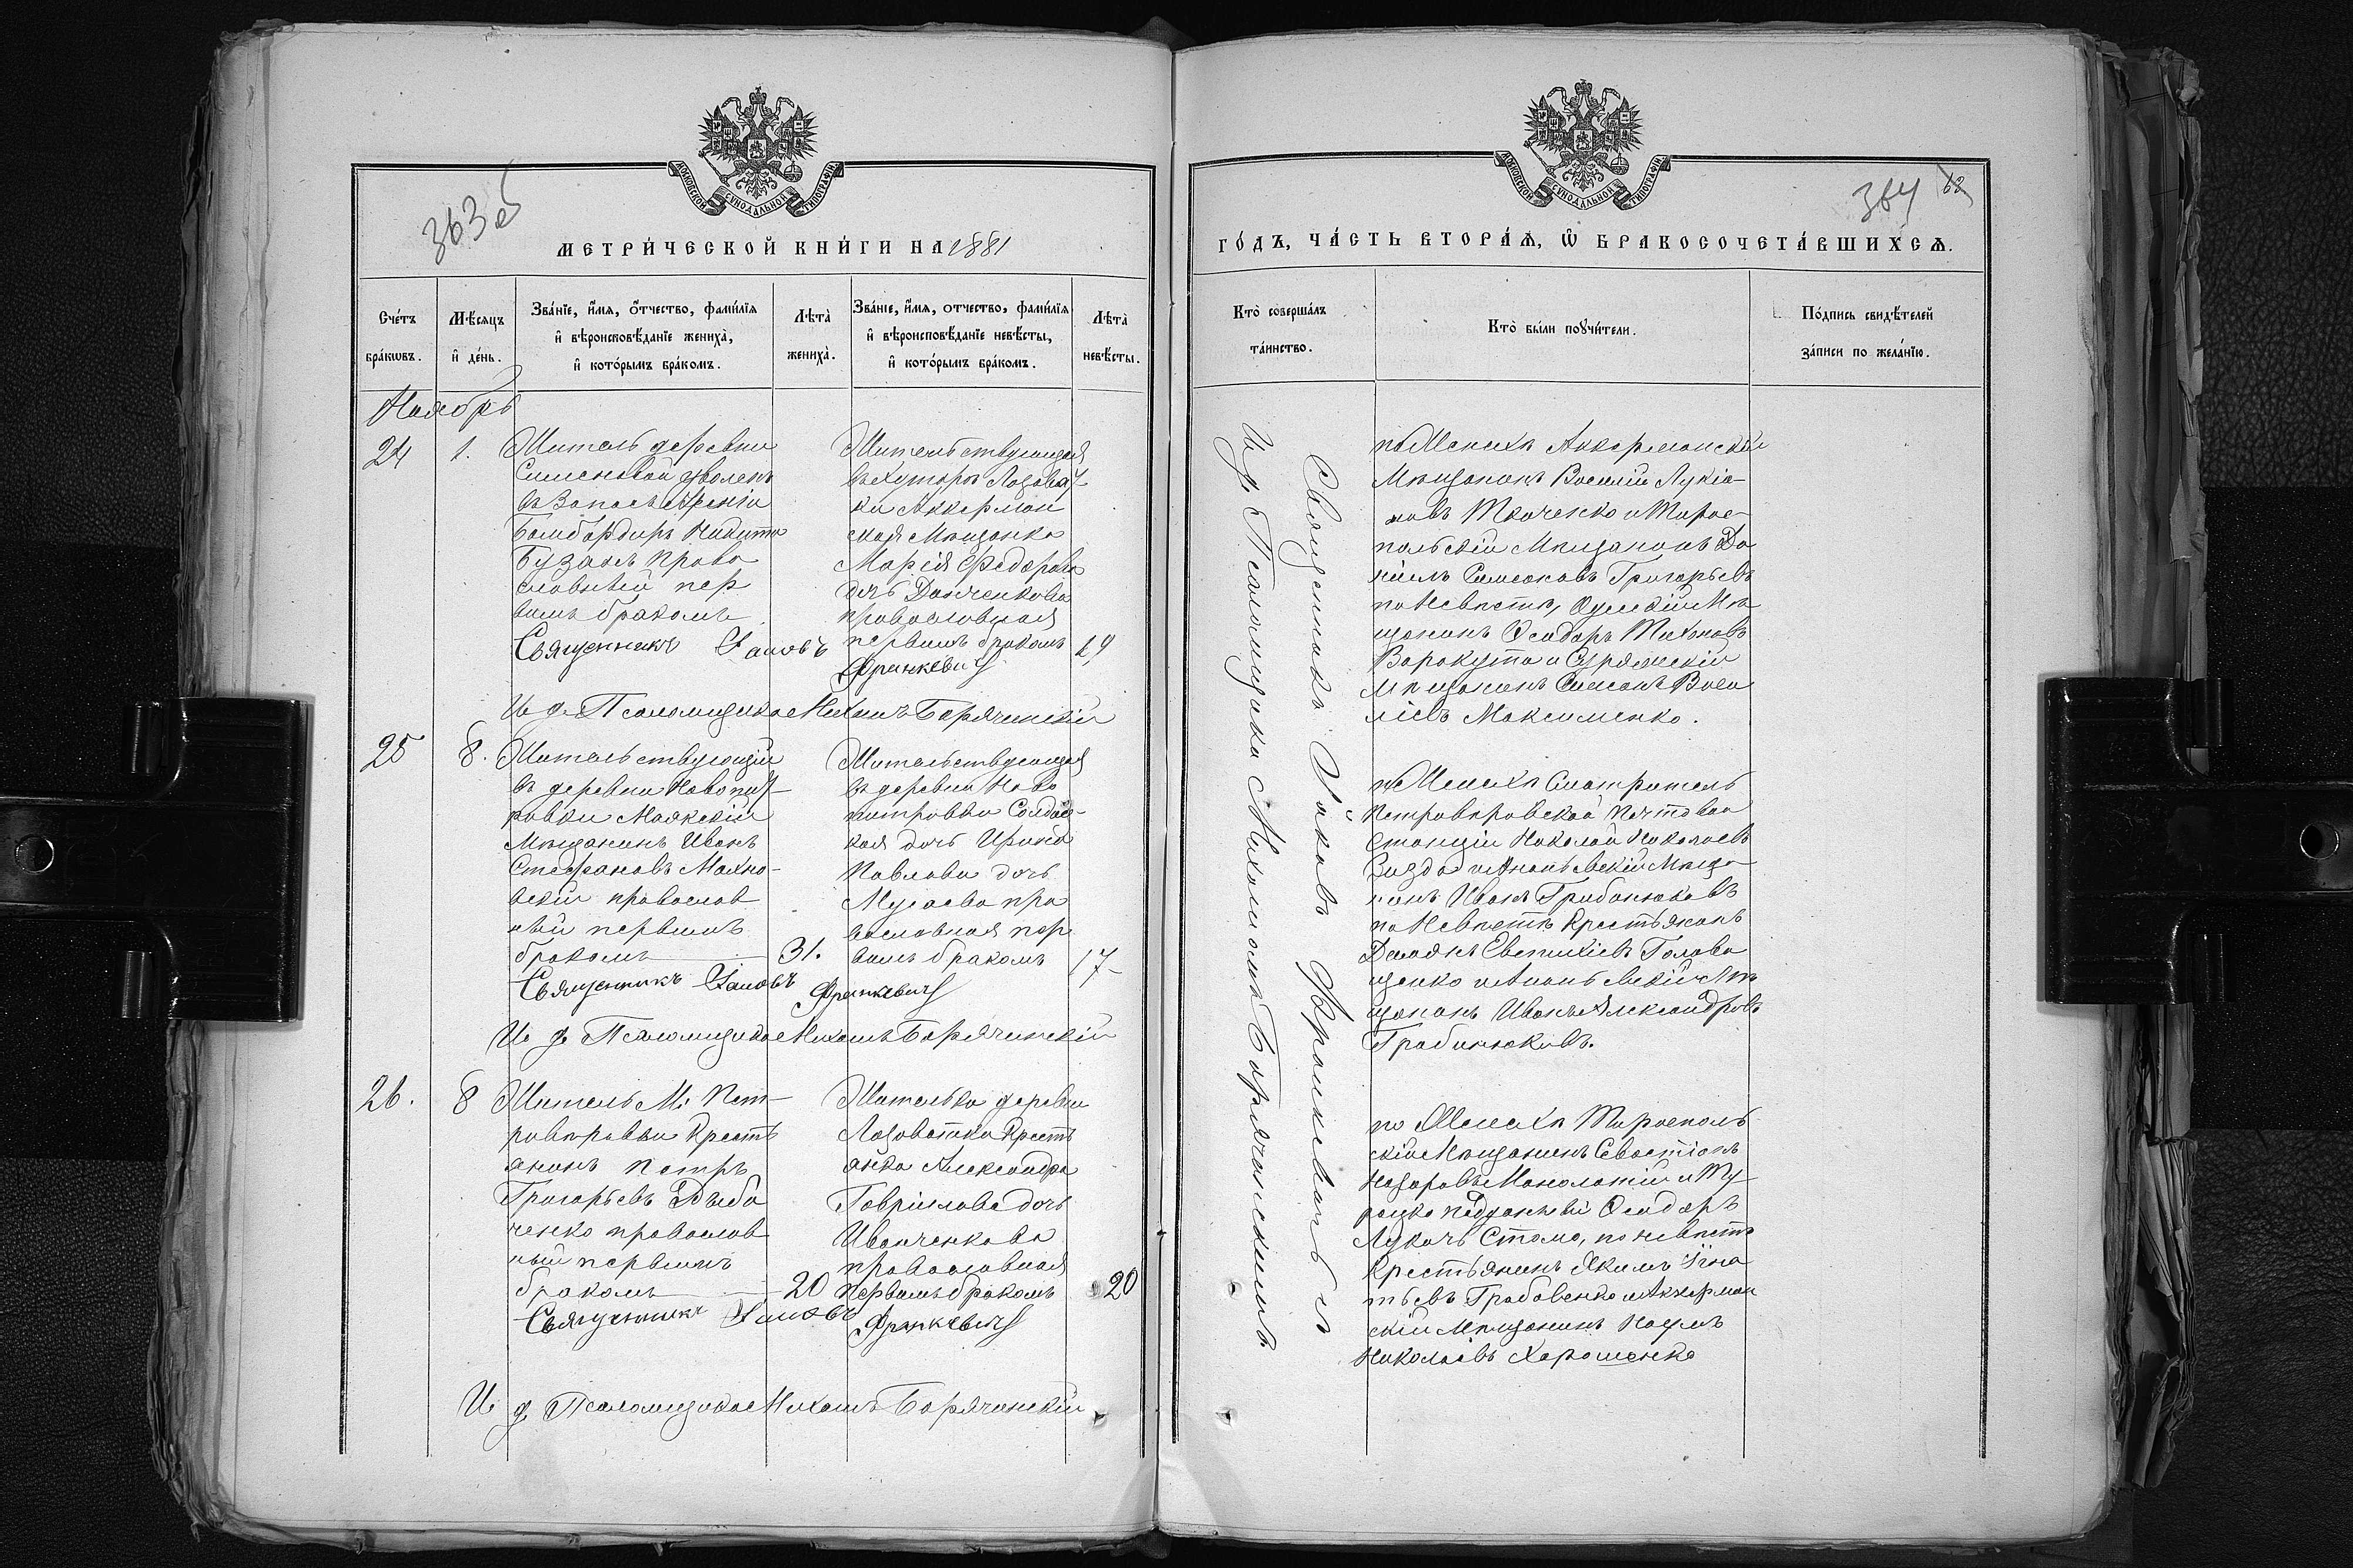 363 об
МОСКОВСКОЙ СѴНОДАЛЬНОЙ ТИПОГРАФІИ
МЕТРИ́ЧЕСКОЙ КНИ́ГИ НА 1881
Сче́тъ бра́кѡвъ.
Мѣ́сяцъ и҆ де́нь.
Зва́нїе, и҆́мѧ, ѻ҆́тчество, фами́лїѧ
и҆ вѣроисповѣ́данїе жениха̀,
и҆ кото́рымъ бра́комъ.
Лѣ́та̀ жениха̀.
Зва́нїе, и҆́мѧ, отчество, фами́лїѧ
и҆ вѣроисповѣ́данїе невѣ́сты,
и҆ кото́рымъ бра́комъ.
Лѣ́та̀ невѣ́сты.
Ноябрь
24
1.
Житель деревни
Семеновой уволен
въ Запасъ Арміи
Бомбардиръ Никита
Бузанъ Право
славный пер
вымъ бракомъ
Жительствующая
въ хуторѣ Лозоват
ки Аккерман
ская Мѣщанка
Марія Федорова
дочь Данченкова
православная
первымъ бракомъ 19
Священникъ Іаковъ Франкевичъ
И. д. Псаломщика Михаилъ Борячинскій
25
8.
Жительствующій
въ деревни Новопет
ровки Маякскій
Мѣщанинъ Иванъ
Стефановъ Махно-
вскій православ
ный первымъ
бракомъ 31.
Жительствующая
въ деревни Ново
петровки Солдат-
кая дочь Ирина
Павлова дочь
Мусаева пра
вославная пер
вымъ бракомъ 17
Священникъ Іаковъ Франкевичъ
И. д. Псаломщика Михаилъ Борячинскій
26.
8
Житель М: Пет-
ровировки Кресть
янинъ Петръ
Григорьевъ Дыба
ченко православ
ный первымъ
бракомъ 20
Жителька деревни
Лозоватки Кресть
янка Александра
Гавріилова дочь
Иванченкова
православная
Первымъ бракомъ 20
Священникъ Іаковъ Франкевичъ
И. д. Псаломщика Михаилъ Борячинскій
364
МОСКОВСКОЙ СѴНОДАЛЬНОЙ ТИПОГРАФІИ
ГО́ДЪ, ЧА́СТЬ ВТОРА́Ѧ, Ѽ БРАКОСОЧЕТА́ВШИХСѦ.
Кто̀ соверша́лъ
та́инство.
Кто̀ бы́ли порꙋчи́тели.
По́дпись свидѣ́телей
за́писи по жела́нїю.
Священникъ Іаковъ Франкевичъ съ
И. д. Псаломщика Михаиломъ Борячинскимъ
по Женихѣ Аккерманскій
Мѣщанинъ Василій Лукіа-
новъ Ткаченко и Тирас-
польскій Мѣщанинъ Да
ніилъ Симеоновъ Григорьевъ
по Невѣстѣ, Одесскій Мѣ
щанинъ Ѳеодоръ Тихоновъ
Воракута и
Мѣщанинъ Симеонъ Васи
ліевъ Максименко.
по Женихѣ Смотритель
Петровировской Почтовой
Станціи Николай Николаевъ
и Ананьевскій Мѣща
нинъ Иванъ Грибанюковъ
по Невѣстѣ Крестьянинъ
Демьянъ Евтихіевъ Голова
щенко и Ананьевскій Мѣ
щанинъ Иванъ Александровъ
Грабинюковъ.
по Женихѣ Тирасполь
скій Мѣщанинъ Севастіанъ
Назаровъ Манолатій и Ту
рецко подданный Ѳеодоръ
Лукачъ Стамо, по невѣстѣ
Крестьянинъ Якимъ Игна
тьевъ Грабовенко и Аккерман
скій Мѣщанинъ Наумъ
Николаевъ Харошенко